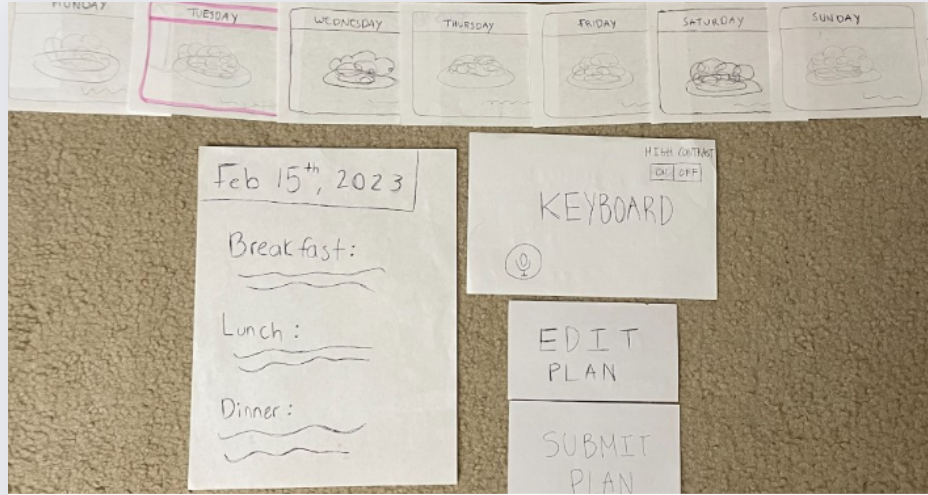 MONDAY
TUESDAY
WEDNESDAY
THURSDAY
FRIDAY
SATURDAY
SUNDAY
Feb 15th, 2023
Breakfast:
Lunch:
Dinner:
HIGH CONTRAST
ON OFF
KEYBOARD
EDIT
PLAN
SUBMIT
PLAN